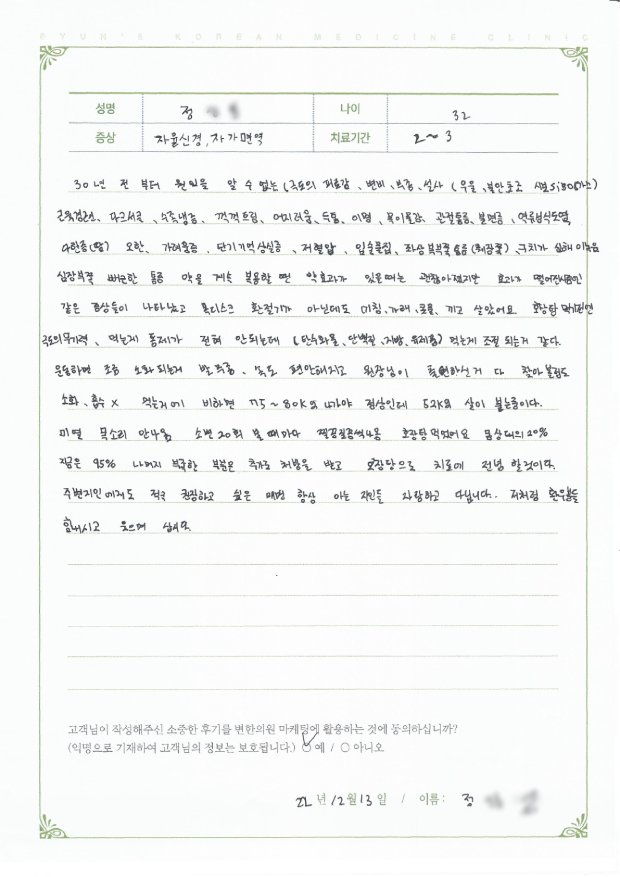 BYUN'S KOREAN MEDICINE CLINIC
성명 정 나이 32
증상 자율신경, 자가면역 치료기간 2~3
30년 전 부터 원인을 알 수 없는 (극도의 피로감, 변비, 복통, 설사 (우울, 불안초조 SIBO(가스)
근육경련, 다크서클, 수족냉증, 꺽꺽트림, 어지러움, 두통, 이명, 목이물감, 관절통증, 불면증, 역류성식도염,
다한증(땀) 오한, 가려움증, 단기기억상실증, 저혈압, 입술물집, 좌상복부쪽 (췌장쪽), 구치가 심해
심장부쪽 뻐근한 통증 약을 계속 복용할 땐 약효과가 있을때는 괜찮아졌지만 효과가
같은 증상들이 나타났고 환절기가 아닌데도 기침, 가래, 콧물, 끼고 살았어요
극도의무기력, 먹는게 통제가 전혀 안되는데 (탄수화물, 단백질, 지방, 유제품) 먹는게 조절 되는거 같다.
운동하면 조금 소화되는게 속도 편안해지고 원장님이 거 다 찾아
소화, 흡수 X 먹는거에 비하면 75~80KG 나가야 정상인데 52KG 살이 붙는중이다.
미열 목소리 안나옴 소변 20회 볼 때마다 먹었어요 20%
지금은 95% 나머지 부족한 부분은 추가로 처방을 받고 으로 치료에 전념 할것이다.
주변지인에게도 적극 권장하고 싶은 항상 아는 지인들 자랑하고 다닙니다. 저처럼 환우분들
힘내시고 웃으며 삽시다.
고객님이 작성해주신 소중한 후기를 변한의원 마케팅에 활용하는 것에 동의하십니까?
(익명으로 기재하여 고객님의 정보는 보호됩니다.) 예 / 아니오
22 년 12월 13 일 / 이름 : 정